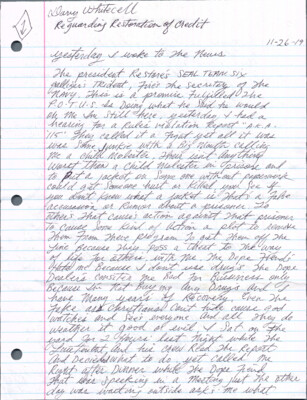 Danny Whitecell
Reguarding Restoration of Credit
11-26-19
yesterday I woke to the News
The president Restores SEAL TEAM SIX
Trident, Fires the secretary of the
NAVY. Then is a promise Fulfilled. The
P.O.T.U.S. is Doing what he Said he would
Im Still here. yesterday I had a
hearing for a Rules violation Report a.k.a.
115 They called it a Fight yet all it was
was Some Junkie with a Big mouth calling
me a child molester. How anything
worst then a child molester in prison and
to put a jacket on Some one without paperwork
could get Someone hurt or killed you See if
you dont know what a jacket is That's a false
accusation or Rumor about a prisoner To
others That cause's action against that prisoner
to cause Some kind of action a plot to Remove
Them From Their program to get them off the
Line because They pose a threat to the way
of life for others. with me The Dope Fiends
Hate me Because I dont use drug's The Dope
Dealers me Bad for Business
Because Im Not Buying Any Drugs and I
have Many years of Recovery. Even The
Fake ass Christians cant take cause
watches and See's everyone and all They do
weather it good or evil. I Sat on The
yard for 2 Hours last Night while The
Lieutenant and his crew Read the Report
And Decided what to do yet called me
Right after Dinner while The Dope Fiend
That was Speaking in a Meeting just The other
day was waiting outside ask's me what